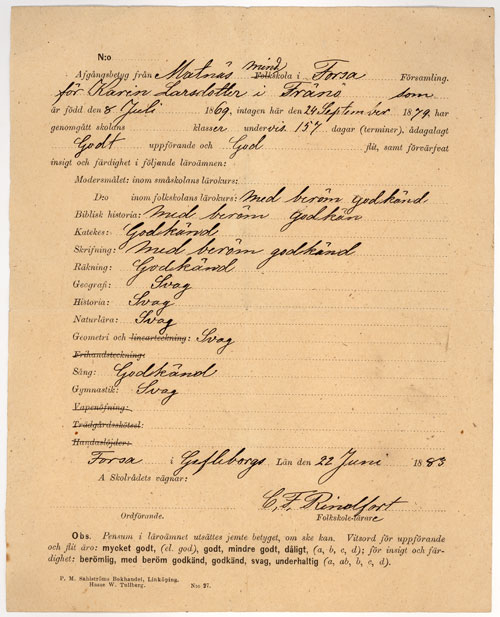 N:o
Afgångsbetyg från Matnäs mind Folkskola i Forsa Församling.
för Karin Larsdotter i Träns som
är född den 8 Juli 1869, intagen här den 24 September 1879, har
genomgått skolans klasser undervis. 157 dagar (terminer), ådagalagt
Godt uppförande och God flit, samt förvärfvat
insigt och färdighet i följande läroämnen:
Modersmålet: inom småskolans lärokurs:
D:o inom folkskolans lärokurs: Med beröm Godkänd
Biblisk historia: Med beröm Godkän
Katekes: Godkänd
Skrifning: Med beröm godkänd
Räkning: Godkänd
Geografi: Svag
Historia: Svag
Naturlära: Svag
Geometri och linearteckning: Svag
Frihandsteckning:
Sång: Godkänd
Gymnastik: Svag
Vapenöfning:
Trädgårdsskötsel:
Handaslöjder:
Forsa i Gefleborgs Län den 22 Juni 1883
A Skolrådets vägnar:
C. F.
Ordförande. Folkskole-lärare
Obs. Pensum i läroämnet utsättes jemte betyget, om ske kan. Vitsord för uppförande
och flit äro: mycket godt, (el. god), godt, mindre godt, dåligt, (a, b, c, d); för insigt och fär-
dighet: berömlig, med beröm godkänd, godkänd, svag, underhaltig (a, ab, b, c, d).
P. M. Sahlströms Bokhandel, Linköping.
Hasse W. Tullberg. N:o 27.